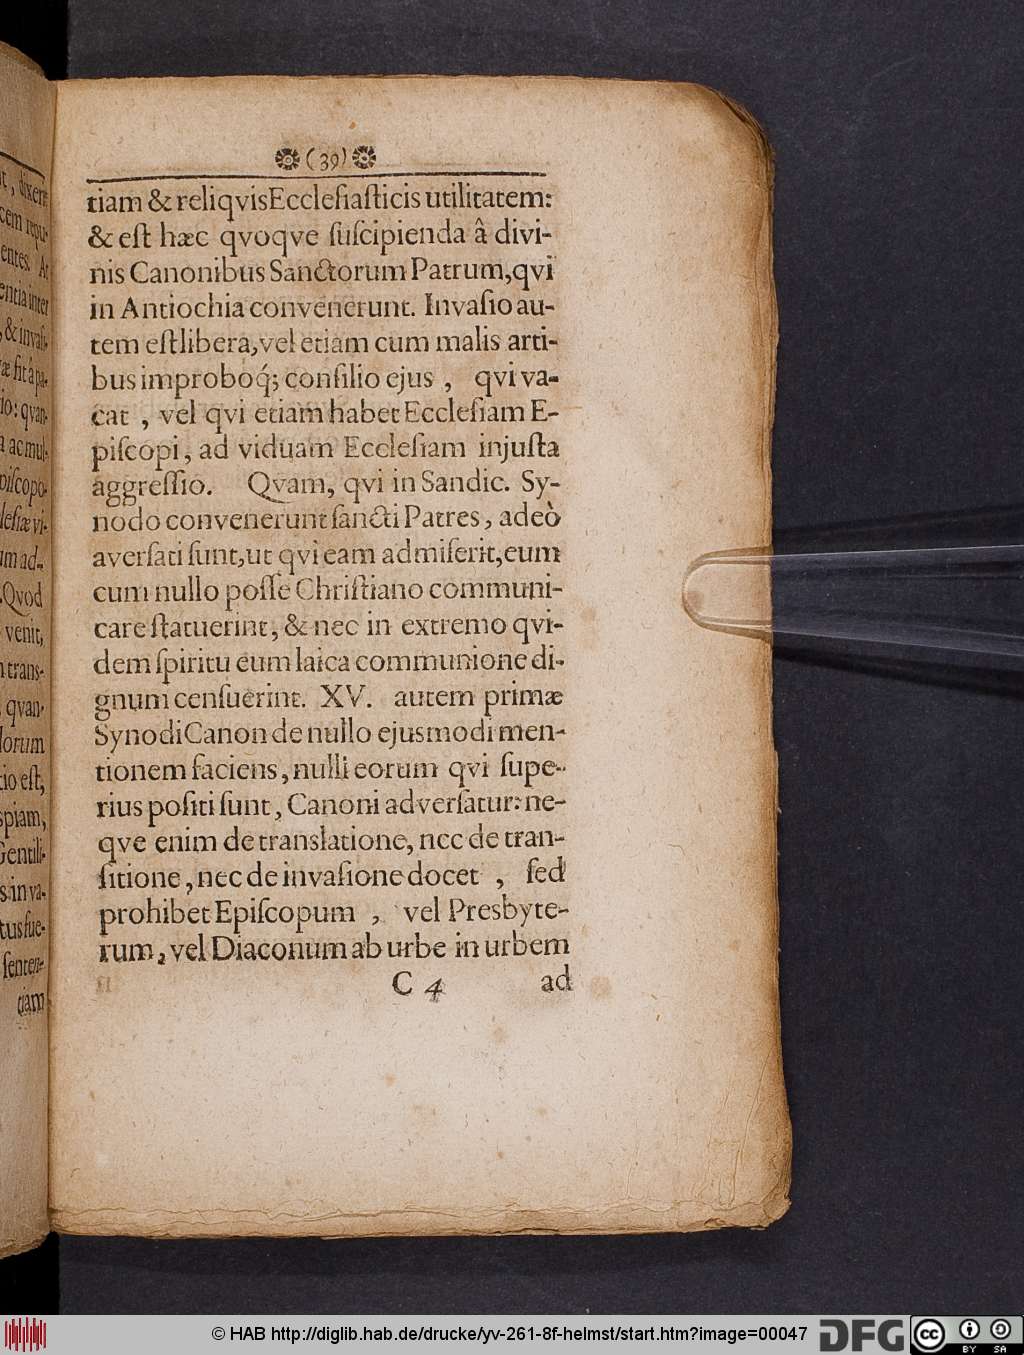 (39)
tiam & reliqvis Ecclesiasticis utilitatem:
& est hæc qvoqve suscipienda â divi-
nis Canonibus Sanctorum Patrum, qvi
in Antiochia convenerunt. Invasio au-
tem est libera, vel etiam cum malis arti-
bus improboq́; consilio ejus, qvi va-
cat, vel qvi etiam habet Ecclesiam E-
piscopi, ad viduam Ecclesiam injusta
aggressio. Qvam, qvi in Sandic. Sy-
nodo convenerunt sancti Patres, adeò
aversati sunt, ut qvi eam admiserit, eum
cum nullo posse Christiano communi-
care statuerint, & nec in extremo qvi-
dem spiritu eum laica communione di-
gnum censuerint. XV. autem primæ
Synodi Canon de nullo ejusmodi men-
tionem faciens, nulli eorum qvi supe-
rius positi sunt, Canoni adversatur: ne-
qve enim de translatione, nec de tran-
sitione, nec de invasione docet, sed
prohibet Episcopum, vel Presbyte-
rum, vel Diaconum ab urbe in urbem
C 4 ad
dixerit
cem repu-
entes. At
entia inter
& invasi-
æ sit â pa-
io: qvan-
ac mul-
piscopo-
lesiæ vi-
um ad-
Qvod
venit,
trans-
qvan-
lorum
tio est,
spiam,
Gentili-
s in va-
tus sue-
senten-
tiam
© HAB http://diglib.hab.de/drucke/yv-261-8f-helmst/start.htm?image=00047
DFG
cc BY SA